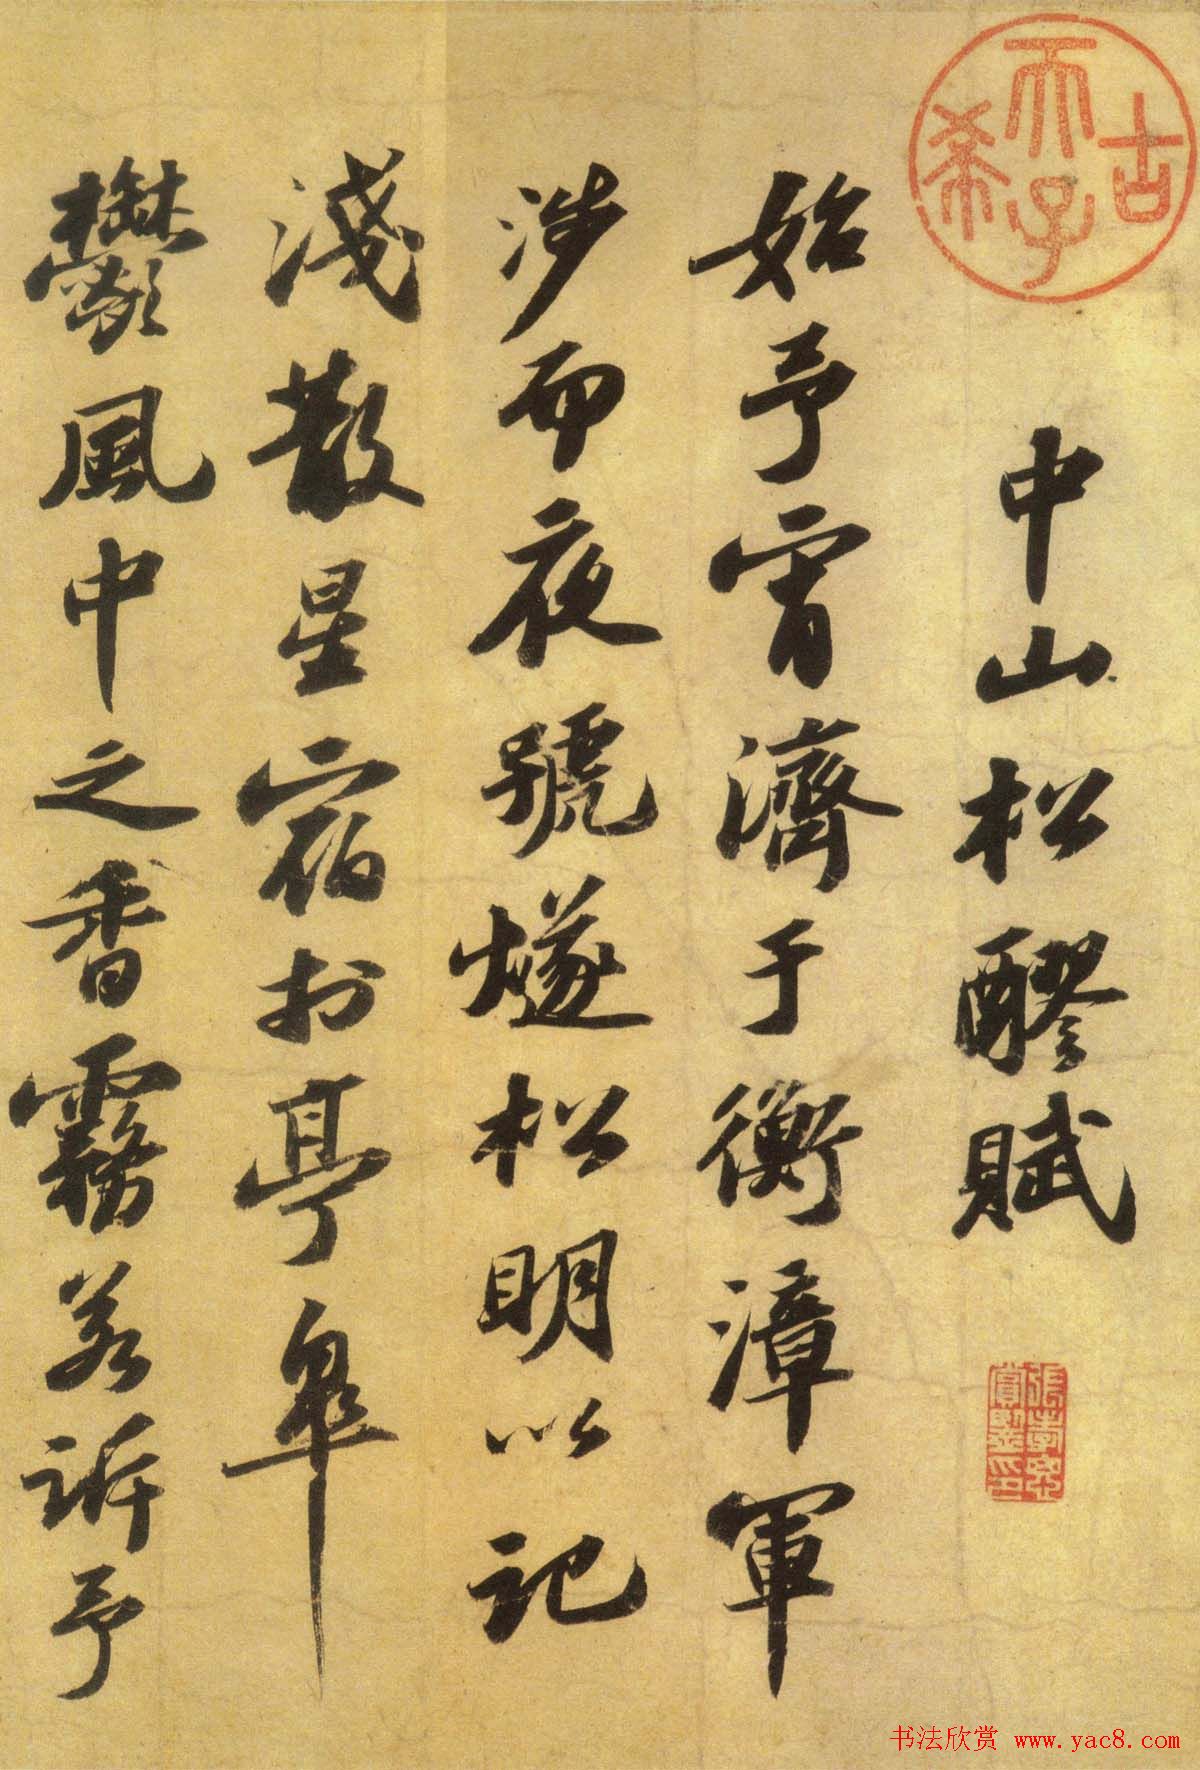 古希天子
中山松醪賦
張孝思賞鑒印
始予宵濟于衡漳軍
涉而夜號燧松明以記
淺散星宿扵亭皐
鬱風中之香霧若訴予
书法欣赏 www.yac8.com